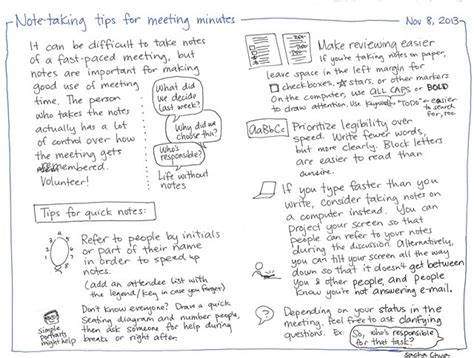 Note-taking tips for meeting minutes
Nov 8, 2013
It can be difficult to take notes
of a fast-paced meeting, but
notes are important for making
good use of meeting
time. The person
who takes the notes
actually has a lot
of control over how
the meeting gets
remembered.
Volunteer!
What did
we decide
last week?
Why did we
choose this?
Who's
responsible?
Life without
notes
Tips for quick notes:
Refer to people by initials
or part of their name
in order to speed up
notes.
(add an attendee list with
the legend/key in case you forget)
simple
portraits
might help
Don't know everyone? Draw a quick
Seating diagram and number people,
then ask someone for help during
breaks or right after.
Make reviewing easier
If you're taking notes on paper,
leave space in the left margin for
checkboxes, ☆ stars, or other markers
On the computer, use ALL CAPS or BOLD
to draw attention. Use keyword "TODO" easier
to search
for, too.
AaBbCc
Prioritize legibility over
speed. Write fewer words,
but more clearly. Block letters
are easier to read than
cursive.
If you type faster than you
write, consider taking notes on
a computer instead. You can
Project your screen so that
people can refer to your notes
during the discussion. Alternatively,
you can tilt your screen all the way
down so that it doesn't get between
you & other people, and people
know you're not answering e-mail.
?
Depending on your status in the
meeting, feel free to ask clarifying
questions. Ex:
So, who's responsible
for that task?
Sacha Chua